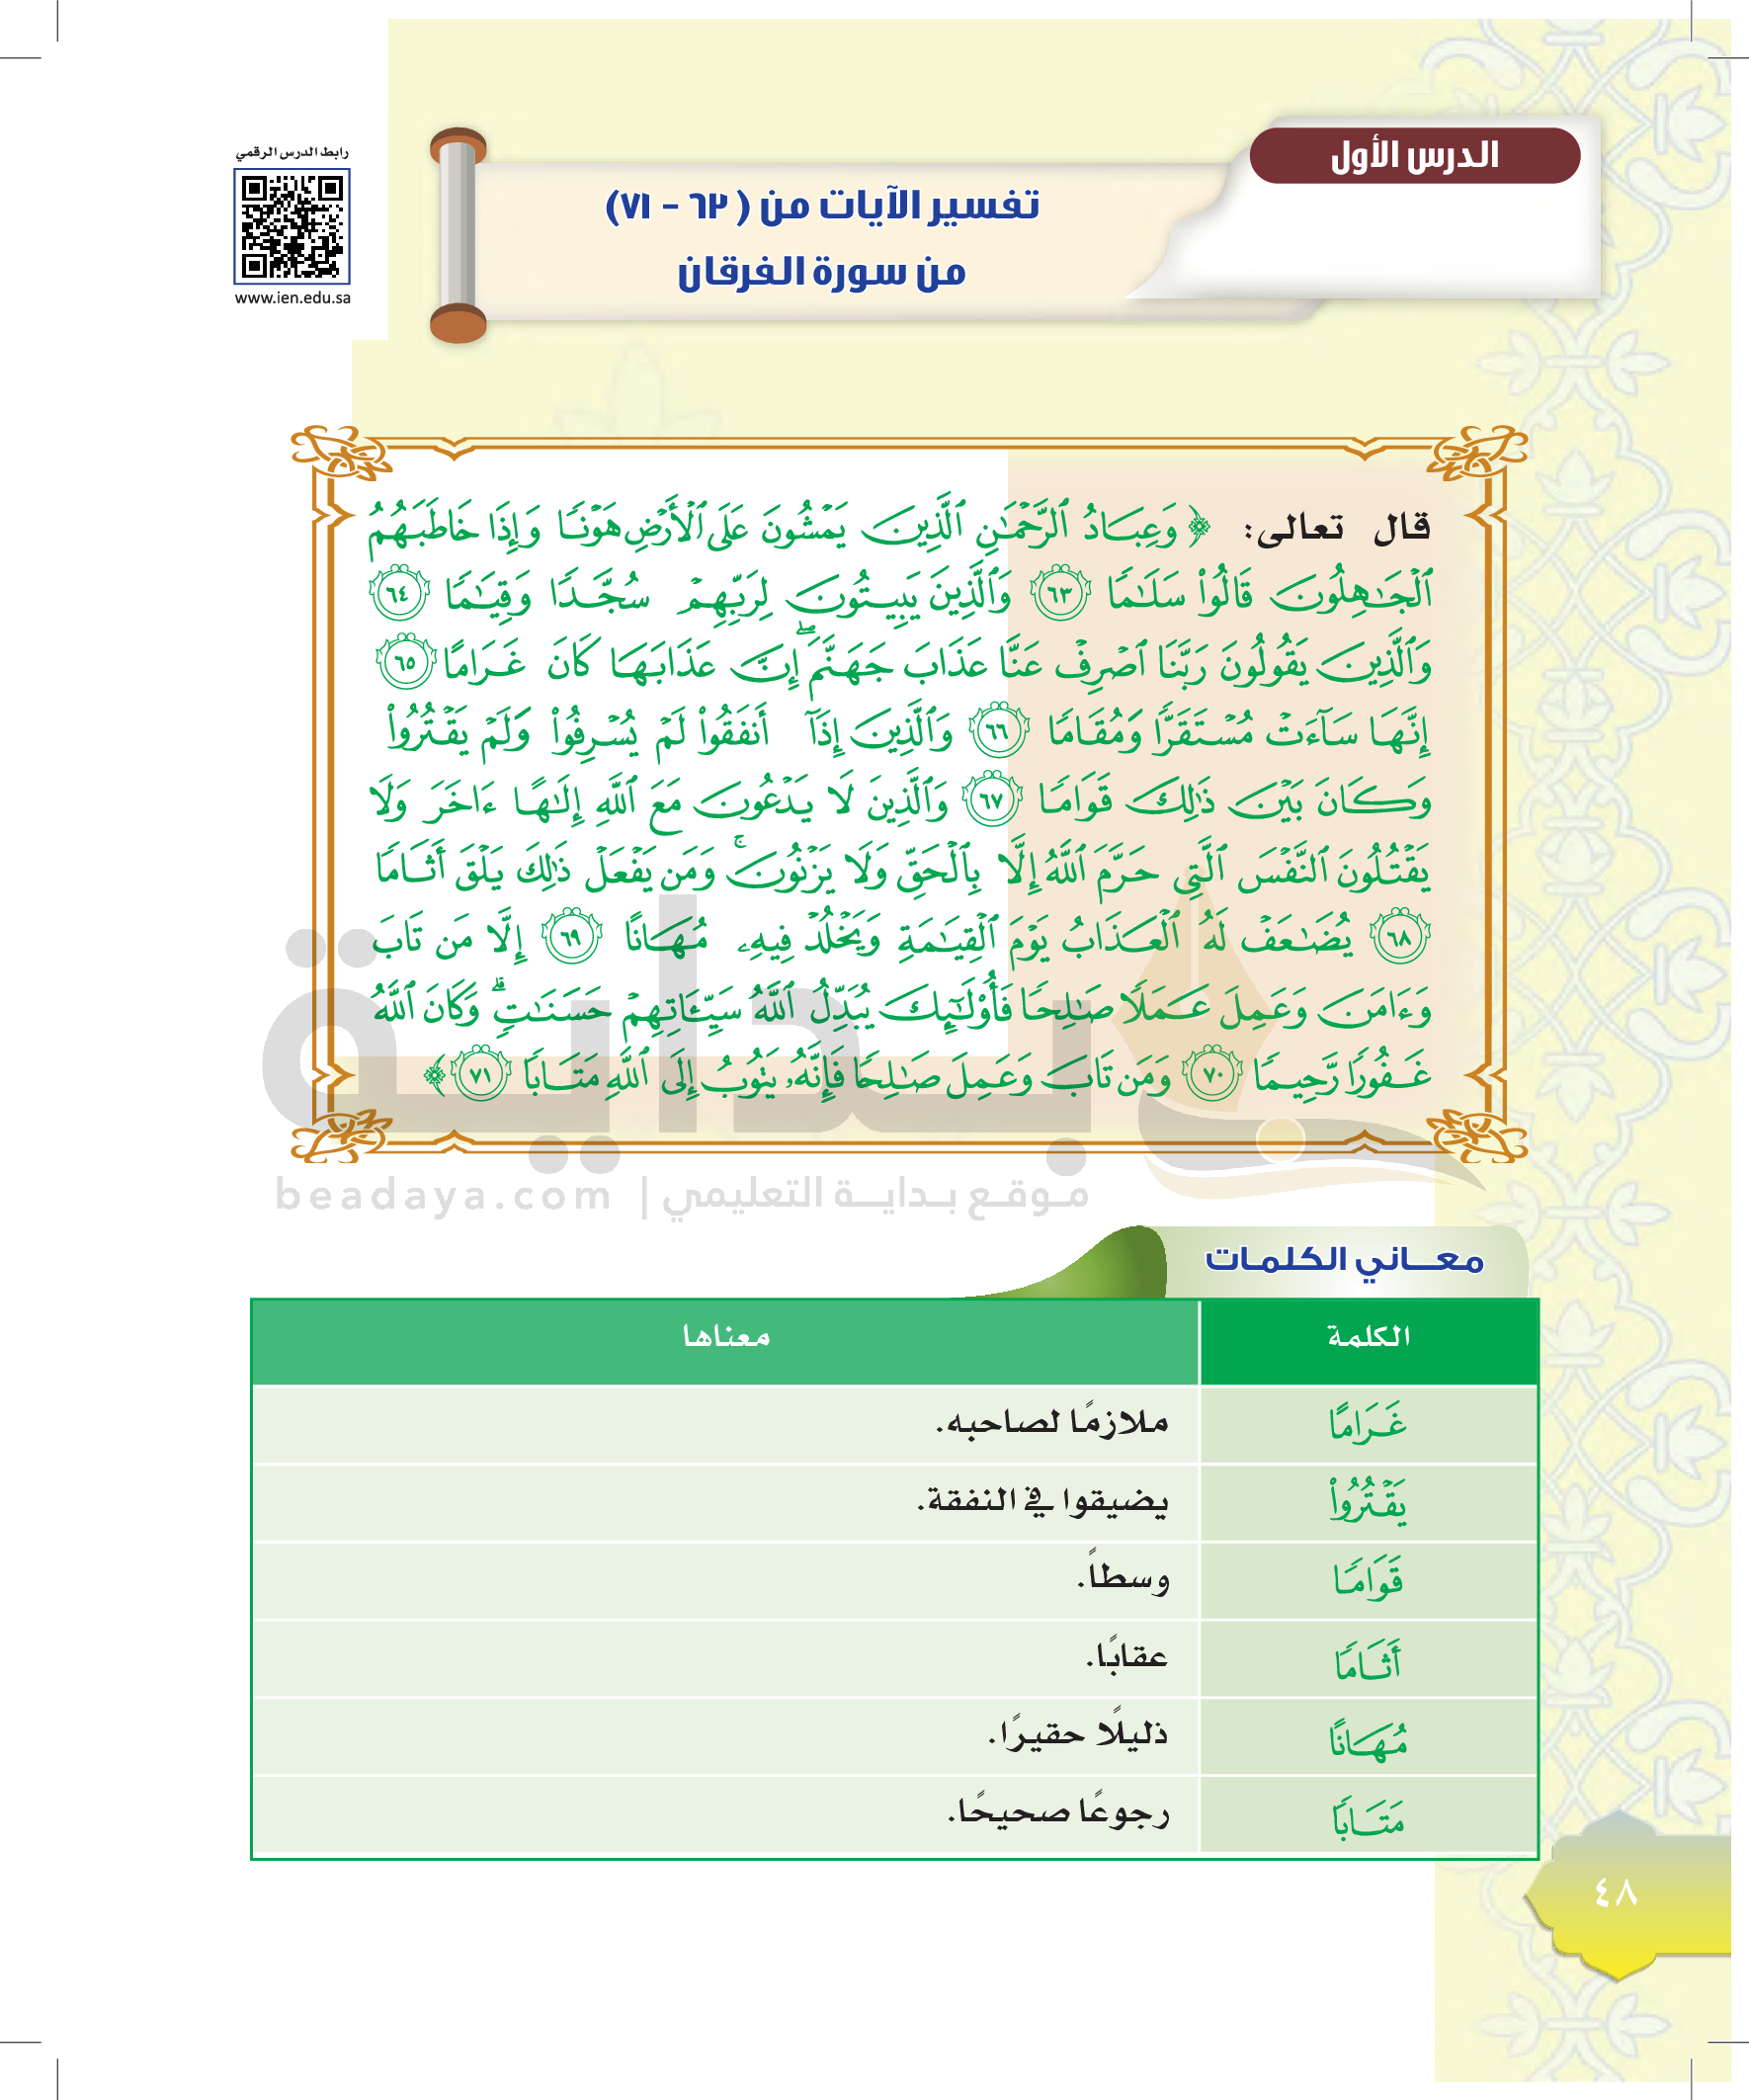 الدرس الأول
تفسير الآيات من (٦٣ - ٧١)
من سورة الفرقان
رابط الدرس الرقمي
www.ien.edu.sa
قال تعالى: ﴿ وَعِبَادُ ٱلرَّحۡمَٰنِ ٱلَّذِينَ يَمۡشُونَ عَلَى ٱلۡأَرۡضِ هَوۡنٗا وَإِذَا خَاطَبَهُمُ
ٱلۡجَٰهِلُونَ قَالُواْ سَلَٰمٗا ٦٣ وَٱلَّذِينَ يَبِيتُونَ لِرَبِّهِمۡ سُجَّدٗا وَقِيَٰمٗا ٦٤
وَٱلَّذِينَ يَقُولُونَ رَبَّنَا ٱصۡرِفۡ عَنَّا عَذَابَ جَهَنَّمَۖ إِنَّ عَذَابَهَا كَانَ غَرَامًا ٦٥
إِنَّهَا سَآءَتۡ مُسۡتَقَرّٗا وَمُقَامٗا ٦٦ وَٱلَّذِينَ إِذَآ أَنفَقُواْ لَمۡ يُسۡرِفُواْ وَلَمۡ يَقۡتُرُواْ
وَكَانَ بَيۡنَ ذَٰلِكَ قَوَامٗا ٦٧ وَٱلَّذِينَ لَا يَدۡعُونَ مَعَ ٱللَّهِ إِلَٰهًا ءَاخَرَ وَلَا
يَقۡتُلُونَ ٱلنَّفۡسَ ٱلَّتِي حَرَّمَ ٱللَّهُ إِلَّا بِٱلۡحَقِّ وَلَا يَزۡنُونَۚ وَمَن يَفۡعَلۡ ذَٰلِكَ يَلۡقَ أَثَامٗا
٦٨ يُضَٰعَفۡ لَهُ ٱلۡعَذَابُ يَوۡمَ ٱلۡقِيَٰمَةِ وَيَخۡلُدۡ فِيهِۦ مُهَانًا ٦٩ إِلَّا مَن تَابَ
وَءَامَنَ وَعَمِلَ عَمَلٗا صَٰلِحٗا فَأُوْلَٰٓئِكَ يُبَدِّلُ ٱللَّهُ سَيِّـَٔاتِهِمۡ حَسَنَٰتٖۗ وَكَانَ ٱللَّهُ
غَفُورٗا رَّحِيمٗا ٧٠ وَمَن تَابَ وَعَمِلَ صَٰلِحٗا فَإِنَّهُۥ يَتُوبُ إِلَى ٱللَّهِ مَتَابٗا ٧١ ﴾
بداية
موقع بداية التعليمي | beadaya.com
معاني الكلمات
الكلمة معناها
غَرَامًا ملازمًا لصاحبه.
يَقۡتُرُواْ يضيقوا في النفقة.
قَوَامٗا وسطاً.
أَثَامٗا عقابًا.
مُهَانًا ذليلًا حقيرًا.
مَتَابٗا رجوعًا صحيحًا.
٤٨